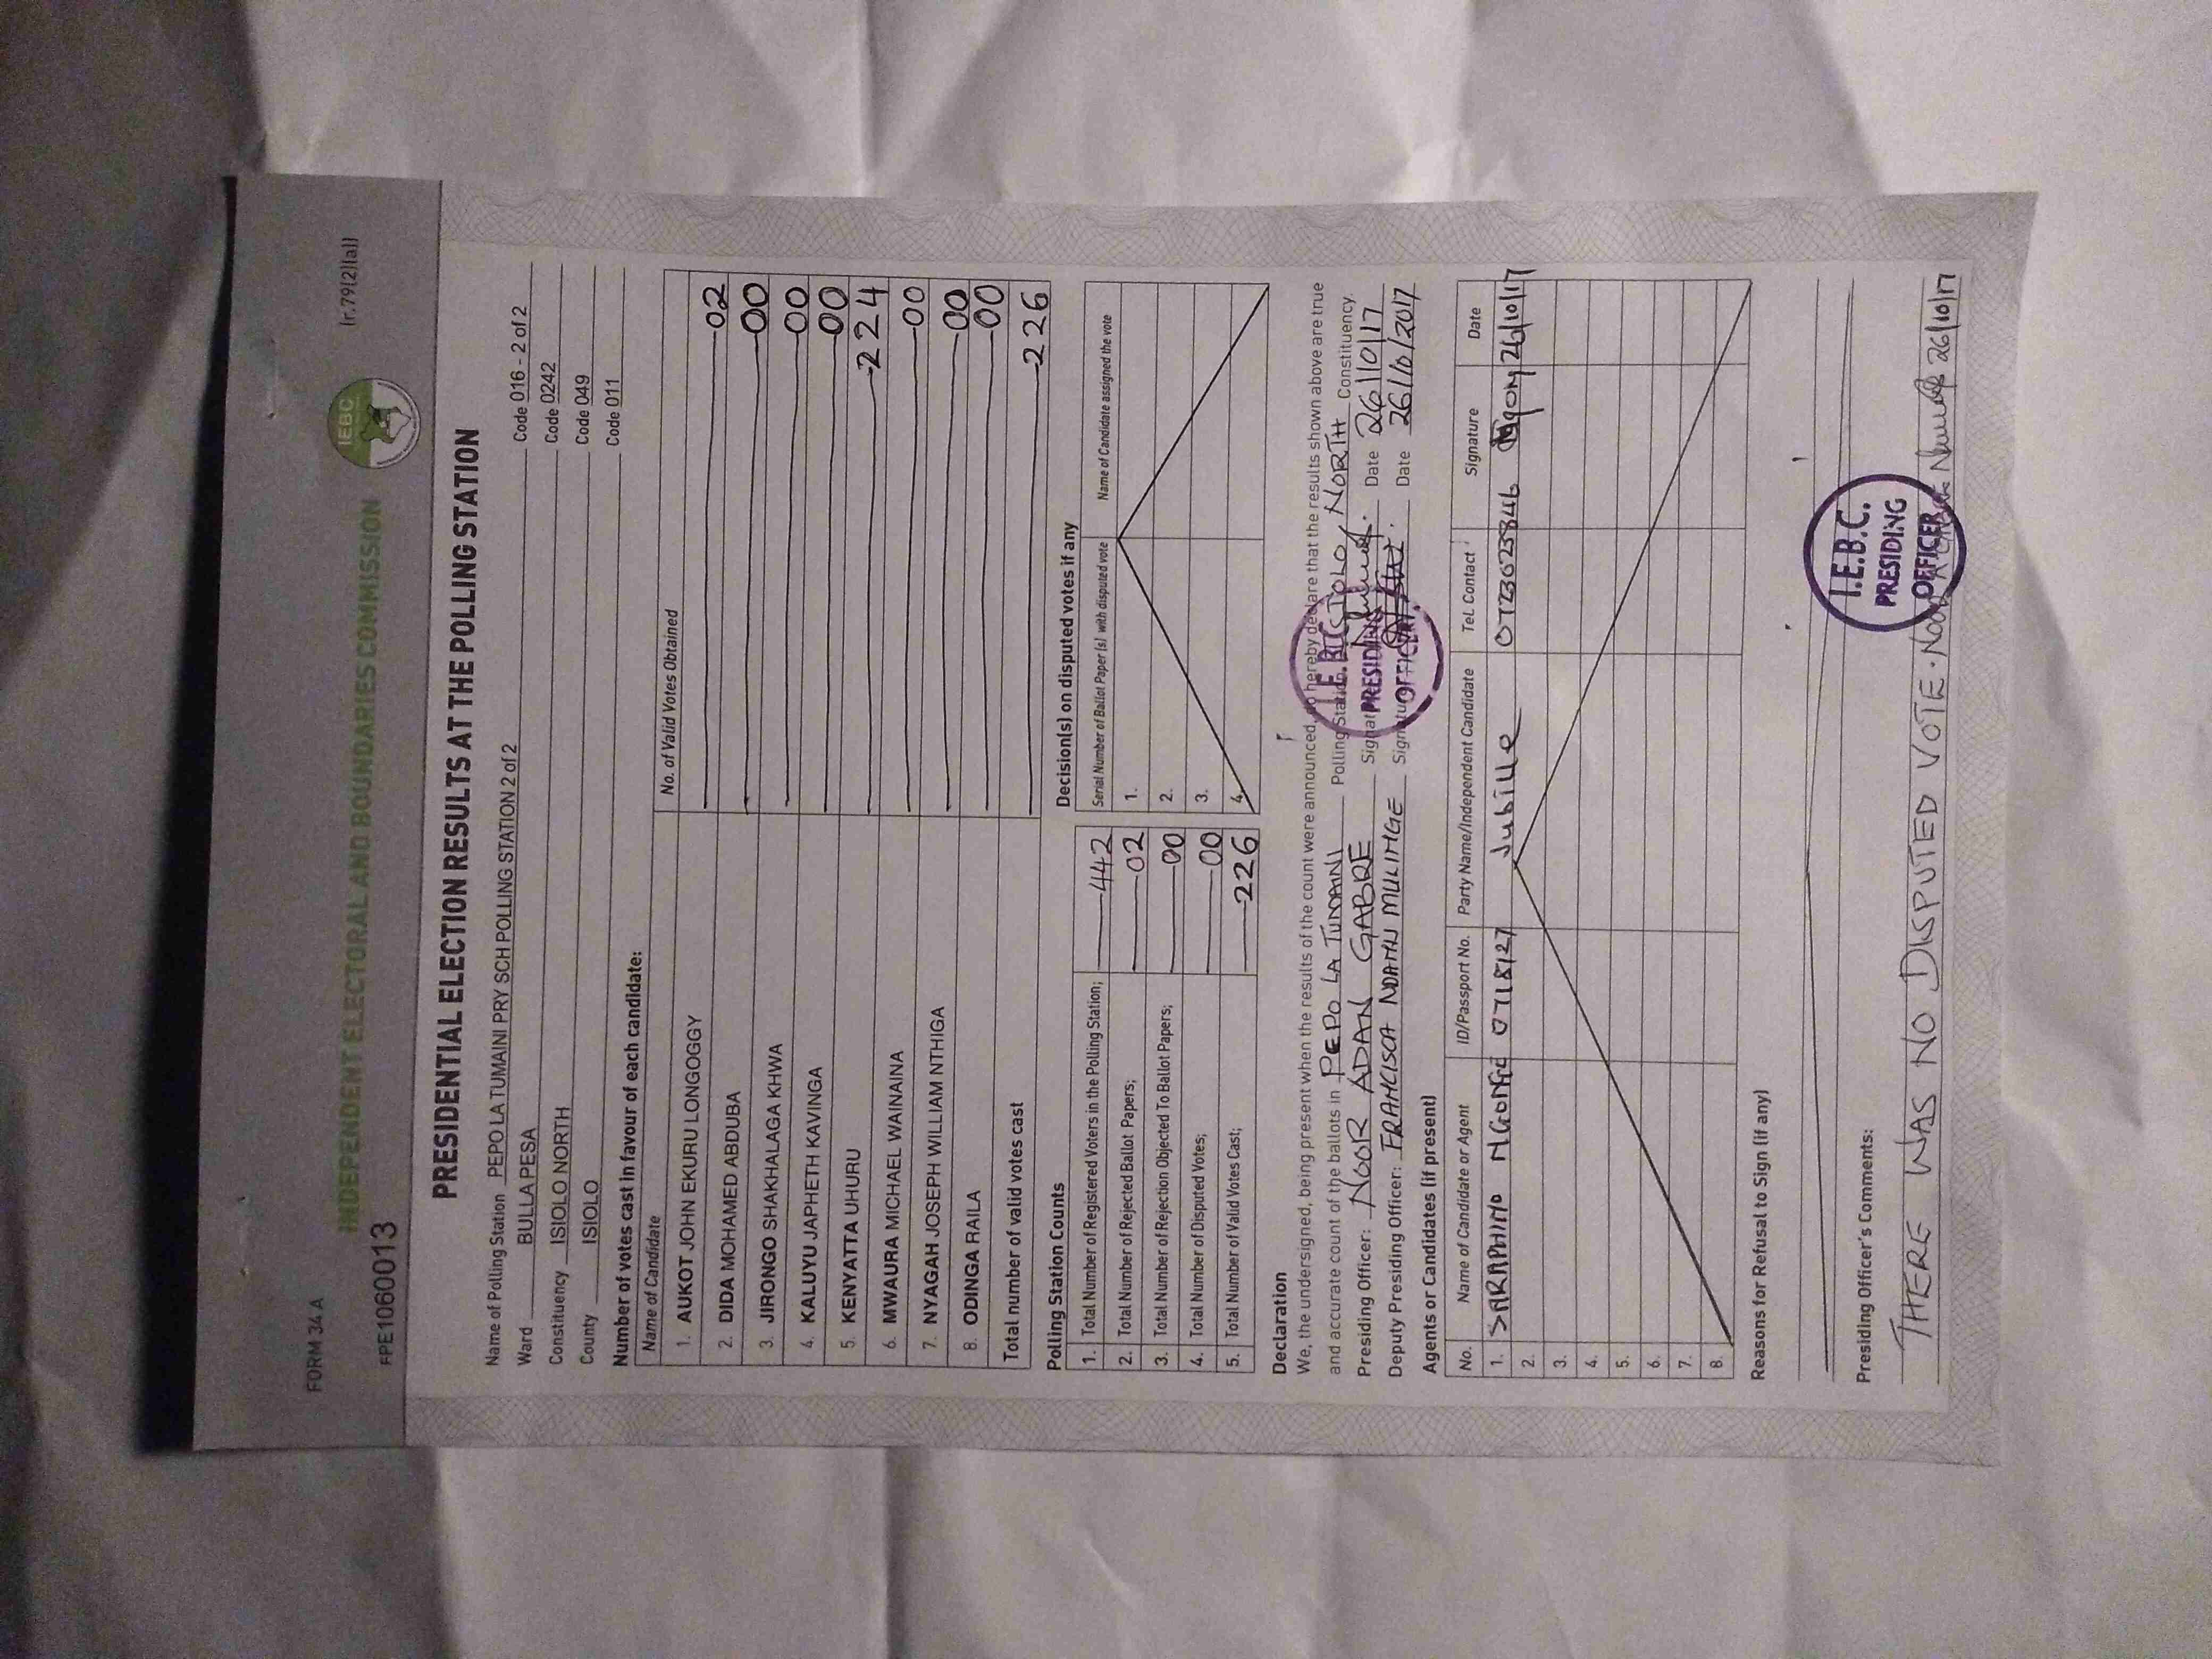 FORM 34 A
(r.79(2)(a))
INDEPENDENT ELECTORAL AND BOUNDARIES COMMISSION
IEBC
FPE1060013
PRESIDENTIAL ELECTION RESULTS AT THE POLLING STATION
Name of Polling Station PEPO LA TUMAINI PRY SCH POLLING STATION 2 of 2 Code 016 - 2 of 2
Ward BULLA PESA Code 0242
Constituency ISIOLO NORTH Code 049
County ISIOLO Code 011
Number of votes cast in favour of each candidate:
Name of Candidate No. of Valid Votes Obtained
1. AUKOT JOHN EKURU LONGOGGY 02
2. DIDA MOHAMED ABDUBA 00
3. JIRONGO SHAKHALAGA KHWA 00
4. KALUYU JAPHETH KAVINGA 00
5. KENYATTA UHURU 224
6. MWAURA MICHAEL WAINAINA 00
7. NYAGAH JOSEPH WILLIAM NTHIGA 00
8. ODINGA RAILA 00
Total number of valid votes cast 226
Polling Station Counts
1. Total Number of Registered Voters in the Polling Station; 442
2. Total Number of Rejected Ballot Papers; 02
3. Total Number of Rejection Objected To Ballot Papers; 00
4. Total Number of Disputed Votes; 00
5. Total Number of Valid Votes Cast; 226
Decision(s) on disputed votes if any
Serial Number of Ballot Paper (s) with disputed vote Name of Candidate assigned the vote
1.
2.
3.
4.
Declaration
We, the undersigned, being present when the results of the count were announced, do hereby declare that the results shown above are true
and accurate count of the ballots in PEPO LA TUMAINI Polling Station, ISIOLO NORTH Constituency.
Presiding Officer: NOOR ADAN GABRE Signature Date 26/10/17
Deputy Presiding Officer: FRANCISCA NDANU MULINGE Signature Date 26/10/2017
I.E.B.C.
PRESIDING
OFFICER
Agents or Candidates (if present)
No. Name of Candidate or Agent ID/Passport No. Party Name/Independent Candidate Tel. Contact Signature Date
1. SARAPHINO 0718127 Jubille 0723025846 26/10/17
2.
3.
4.
5.
6.
7.
8.
Reasons for Refusal to Sign (if any)
Presiding Officer's Comments:
I.E.B.C.
PRESIDING
OFFICER
THERE WAS NO DISPUTED VOTE. NOOR 26/10/17